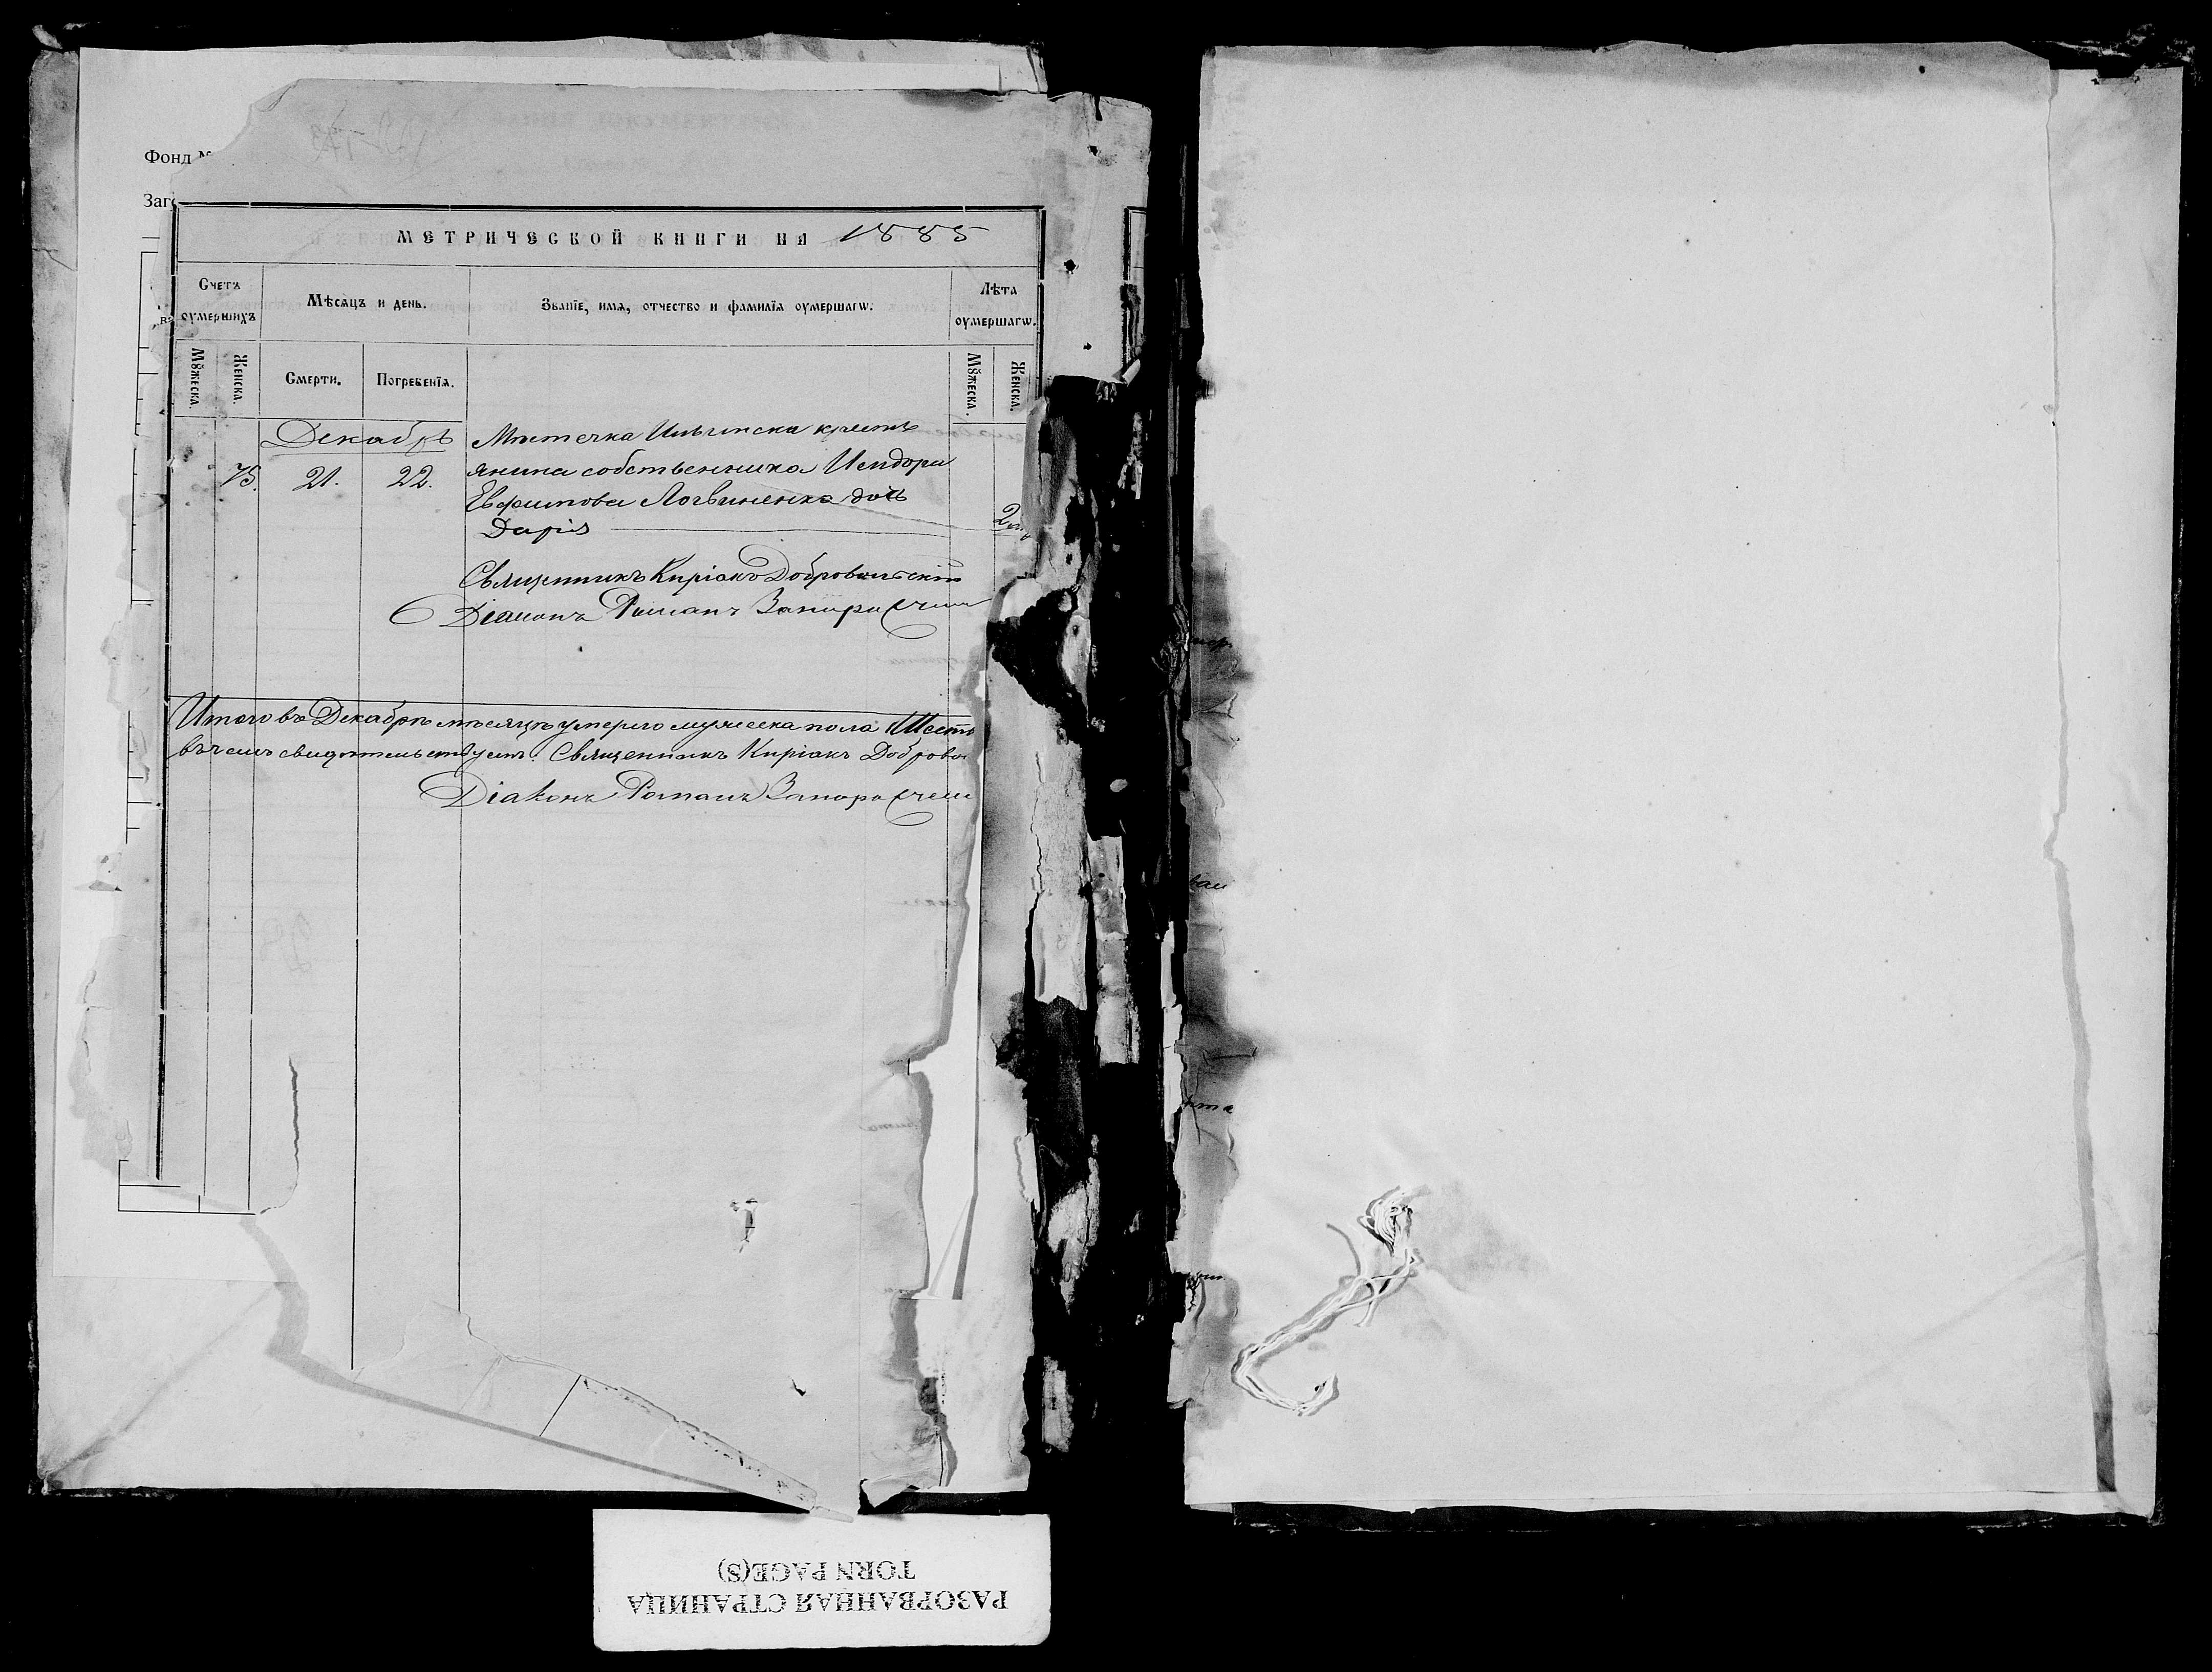 Фонд №
Заг
МЕТРИЧЕСКОЙ КНИГИ НА 1885
Счетъ оумершихъ
Мѣсяцъ и день.
Званїе, имя, отчество и фамилїя оумершагѡ.
Лѣта оумершагѡ.
Мꙋжеска.
Женска.
Смерти.
Погребенїя.
Мꙋжеска.
Женска.
Декабрь
Мѣстечка Ильинска кресть
75. 21. 22. янина собственника Исидора
Евфимова Логвиненка дочь
Дарія 2
Священникъ Киріакъ Добровольскій
Діаконъ Романъ
Итого въ Декабрѣ мѣсяцѣ умерло мужеска пола Шесть
въ чемъ свидѣтельствуемъ: Священникъ Киріакъ Добровол
Діаконъ Романъ
РАЗОРВАННАЯ СТРАНИЦА
TORN PAGE(S)